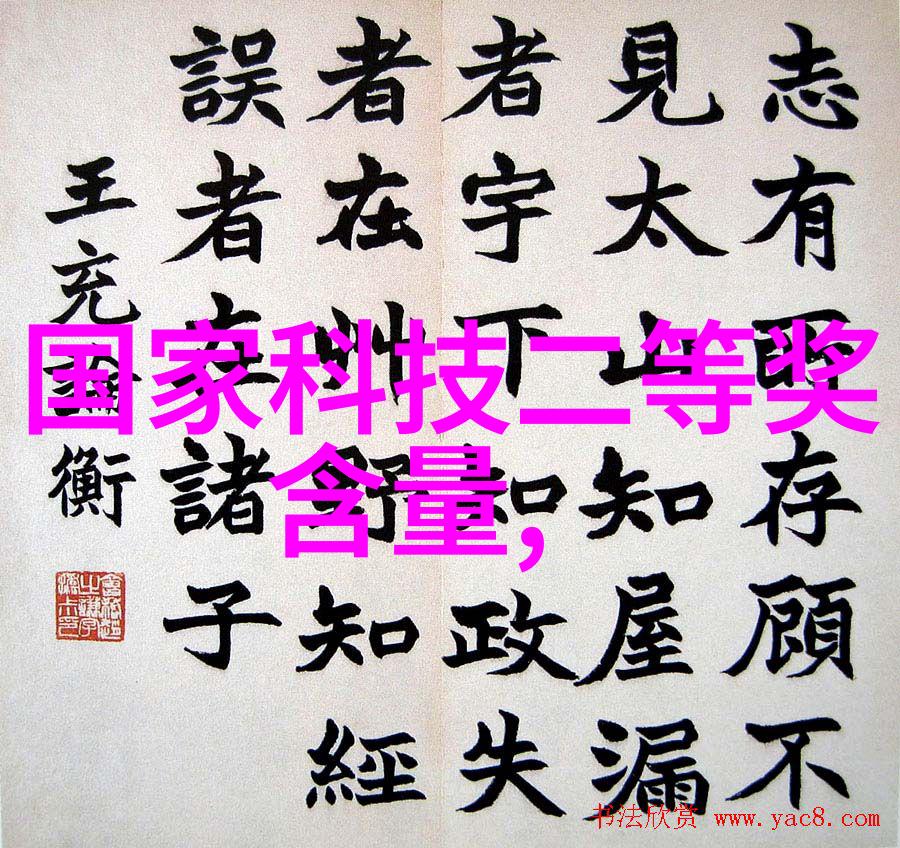 志有所存顧不
見太山知屋漏
者在宇下知政失
者在艸野知經
誤者在諸子
王充論衡
国家科技二等奖
含量,
书法欣赏 www.yac8.com